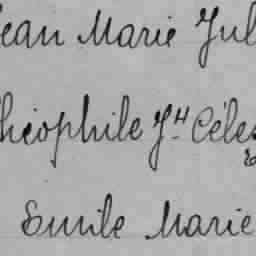 ean Marie Jul
héophile Jh Céles
Emile Marie